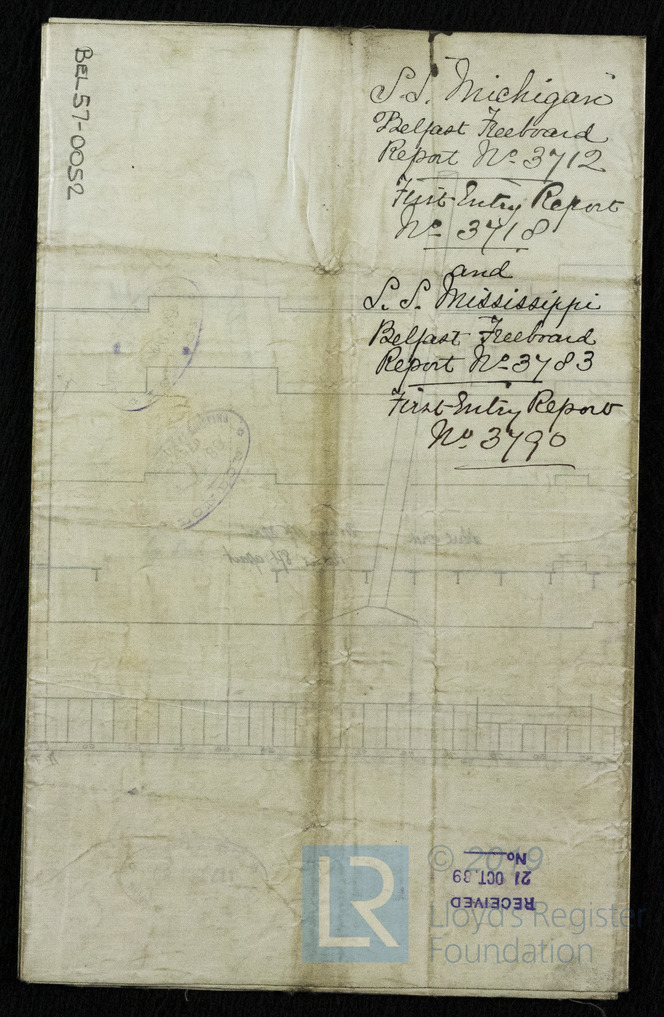 BEL57-0052
S.S. Michigan
Belfast Freeboard
Report No. 3712
First Entry Report
No. 3718
and
S.S. Mississippi
Belfast Freeboard
Report No. 3783
First Entry Report
No. 3790
RECEIVED
21 OCT. 89
No
LR
© 2019
Lloyd's Register
Foundation